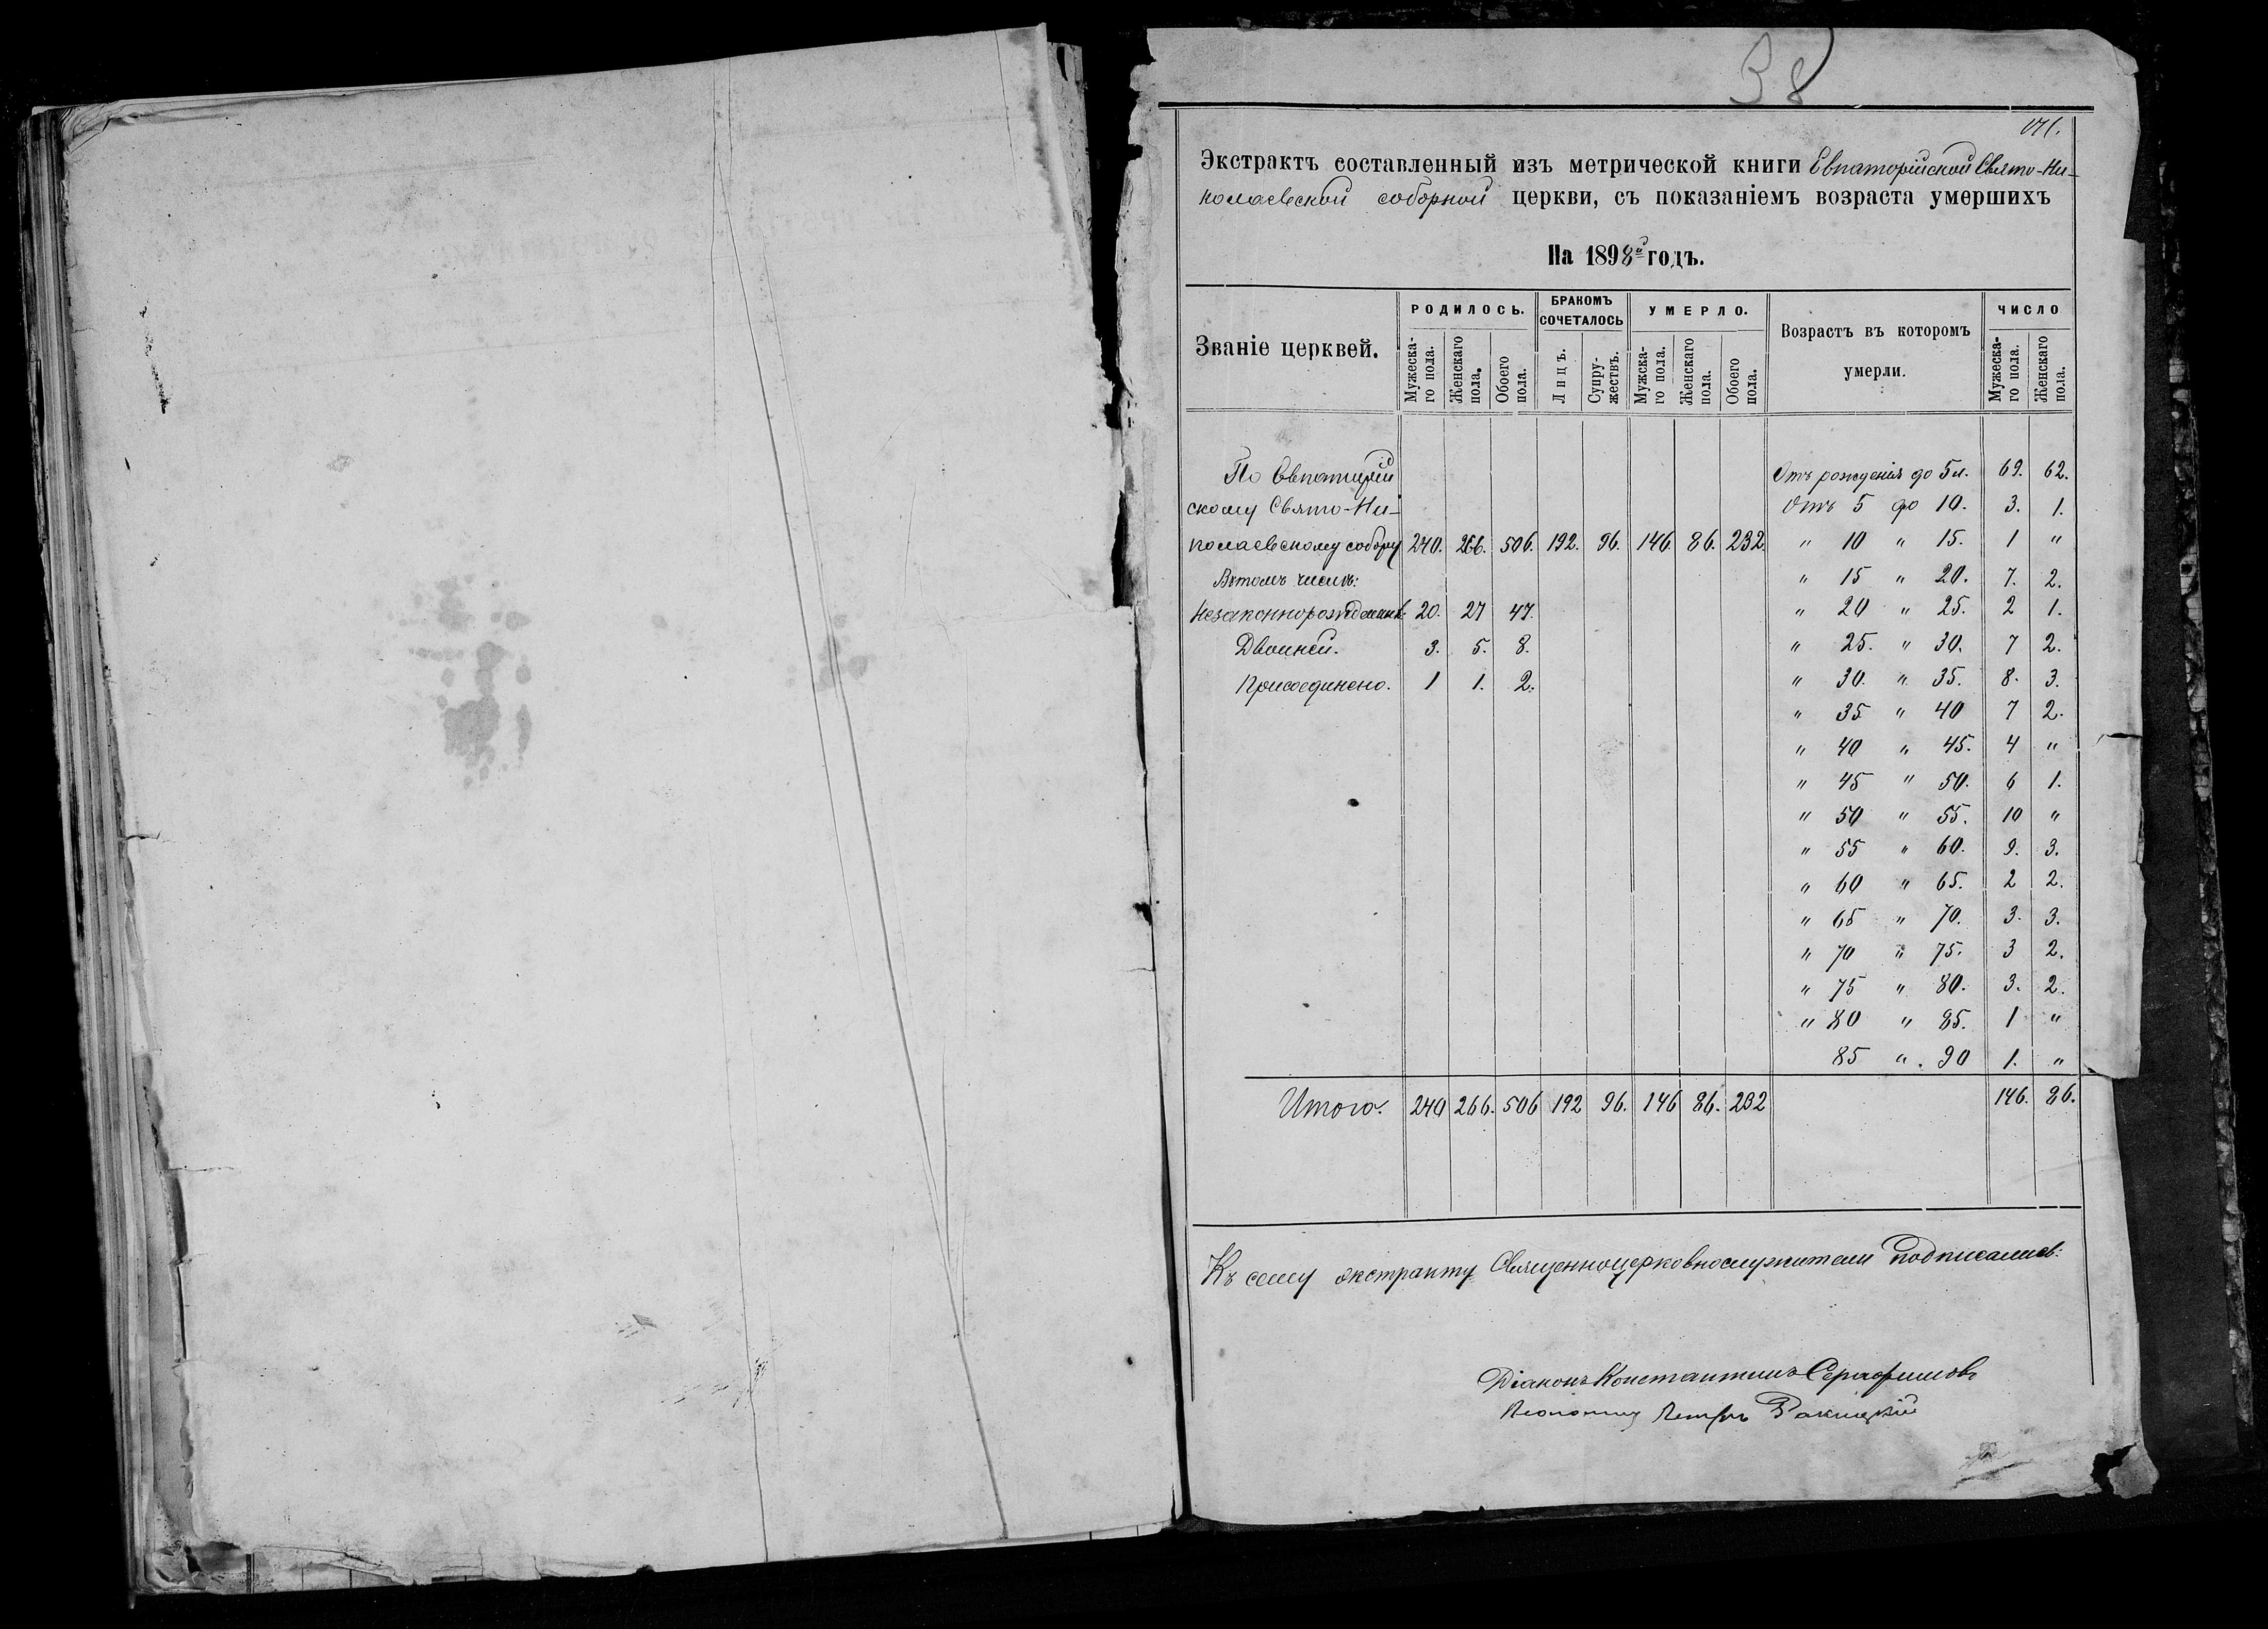 38
Экстрактъ составленный изъ метрической книги Евпаторійской Свято-Ни-
колаевской соборной церкви, съ показаніемъ возраста умершихъ
На 1898й годъ.
Званіе церквей. РОДИЛОСЬ. БРАКОМЪ СОЧЕТАЛОСЬ УМЕРЛО. Возрастъ въ которомъ умерли. ЧИСЛО
Мужеска-го пола. Женскаго пола. Обоего пола. Лицъ. Супру-жествъ. Мужска-го пола. Женскаго пола. Обоего пола. Мужеска-го пола. Женскаго пола.
По Евпаторій Отъ рожденія до 5 л. 69. 62.
скому Свято-Ни- Отъ 5 до 10. 3. 1.
колаевскому собору 240. 266. 506. 192. 96. 146. 86. 232. " 10 " 15. 1 "
Въ томъ числѣ: " 15 " 20. 7. 2.
Незаконнорожденныхъ 20. 27 47. " 20 " 25. 2 1.
Двойней. 3. 5. 8. " 25. " 30. 7 2.
Присоединено. 1 1. 2. " 30. " 35. 8. 3.
" 35 " 40 7 2.
" 40 " 45. 4 "
" 45 " 50. 6 1.
" 50 " 55. 10 "
" 55 " 60. 9. 3.
" 60 " 65. 2 2.
" 65 " 70. 3. 3.
" 70 " 75. 3 2.
" 75 " 80. 3. 2.
" 80 " 85. 1 "
85 " 90 1. "
Итого. 240 266. 506 192 96. 146 86. 232 146. 86.
Къ сему экстракту Священноцерковнослужители подписались:
Діаконъ Константинъ Серафимовъ
Псаломщ Петръ Ракицкій